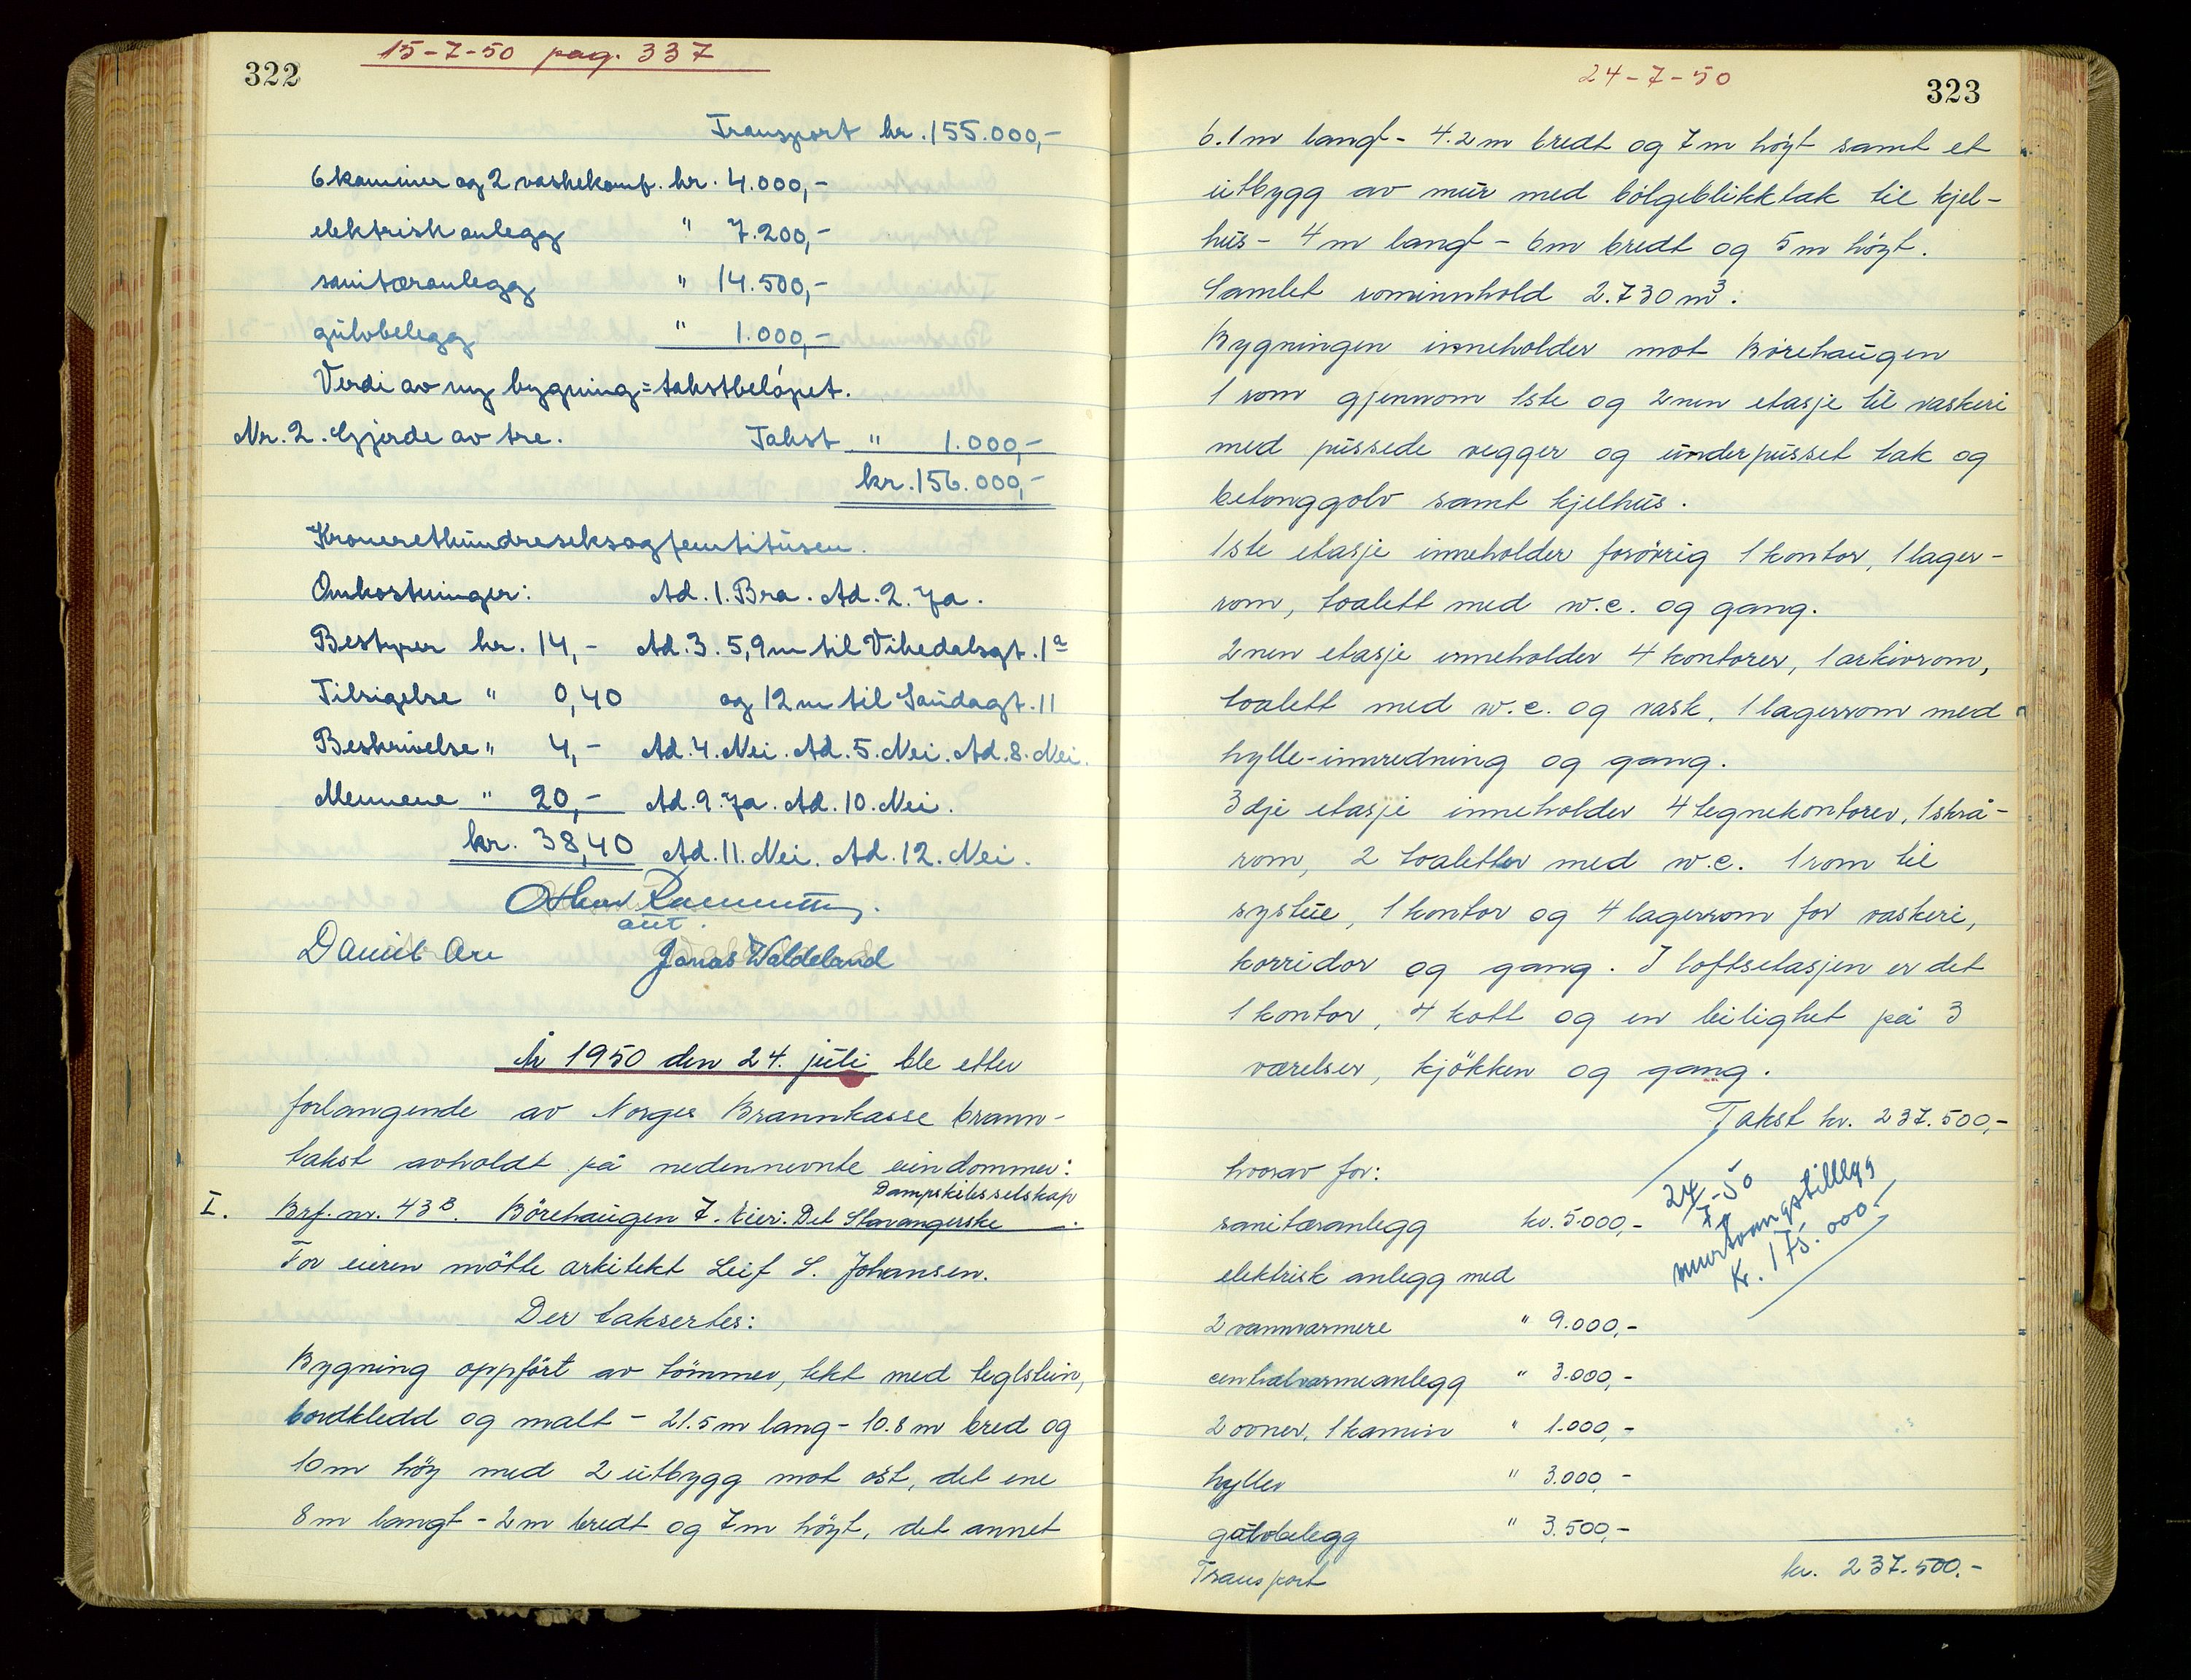 15-7-50 pag. 337
322
Transport kr. 155.000,-
6 kaminer og 2 vaskekomf. kr. 4.000,-
elektrisk anlegg " 7.200,-
sanitæranlegg " 14.500,-
gulvbelegg " 1.000,-
Verdi av ny bygning = takstbeløpet.
Nr. 2. Gjerde av tre. Takst " 1.000,-
kr. 156.000,-
Kronerethundreseksogfemtitusen.
Omkostninger: Ad. 1. Bra. Ad. 2. Ja.
Bestyrer kr. 14,- Ad. 3. 5,9 m til Vikedalsgt. 1a
Tilsigelse " 0,40 og 12 m til Saudagt. 11
Beskrivelse " 4,- Ad. 4. Nei. Ad. 5. Nei. Ad. 8. Nei.
Mennene " 20,- Ad. 9. Ja. Ad. 10. Nei.
kr. 38,40 Ad. 11. Nei. Ad. 12. Nei.
aut.
Daniel Jonas Waldeland
År 1950 den 24. juli ble etter
forlangende av Norges Brannkasse brann-
takst avholdt på nedennevnte eiendommer:
Dampskibsselskap
I. Brf. nr. 43B. Börehaugen 7. Eier: Det Stavangerske .
For eieren mötte arkitekt Leif S. Johansen.
Der taksertes:
Bygning oppfört av tömmer, tekt med teglstein,
bordkledd og malt - 21.5 m lang - 10.8 m bred og
10 m höy med 2 utbygg mot öst, det ene
8 m langt - 2 m bredt og 7 m höyt, det annet
24-7-50
323
6.1 m langt - 4.2 m bredt og 7 m höyt samt et
utbygg av mur med bölgeblikktak til kjel-
hus - 4 m langt - 6 m bredt og 5 m höyt.
Samlet rominnhold 2.730 m³.
Bygningen inneholder mot Börehaugen
1 rom gjennom 1ste og 2nen etasje til vaskeri
med pussede vegger og underpusset tak og
betonggolv samt kjelhus.
1ste etasje inneholder forövrig 1 kontor, 1 lager-
rom, toalett med w.c. og gang.
2nen etasje inneholder 4 kontorer, 1 arkivrom,
toalett med w.c. og vask, 1 lagerrom med
hylle-innredning og gang.
3dje etasje inneholder 4 tegnekontorer, 1 skrå-
rom, 2 toaletter med w.c. 1 rom til
systue, 1 kontor og 4 lagerrom for vaskeri,
korridor og gang. I loftsetasjen er det
1 kontor, 4 kott og en leilighet på 3
værelser, kjökken og gang.
Takst kr. 237.500,-
hvorav for:
sanitæranlegg kr. 5.000,-
24/7-50
murtvangstillegg
kr. 175.000,-
elektrisk anlegg med
2 vannvarmere " 9.000,-
centralvarmeanlegg " 3.000,-
2 ovner, 1 kamin " 1.000,-
hyller " 3.000,-
gulvbelegg " 3.500,-
Transport kr. 237.500.-